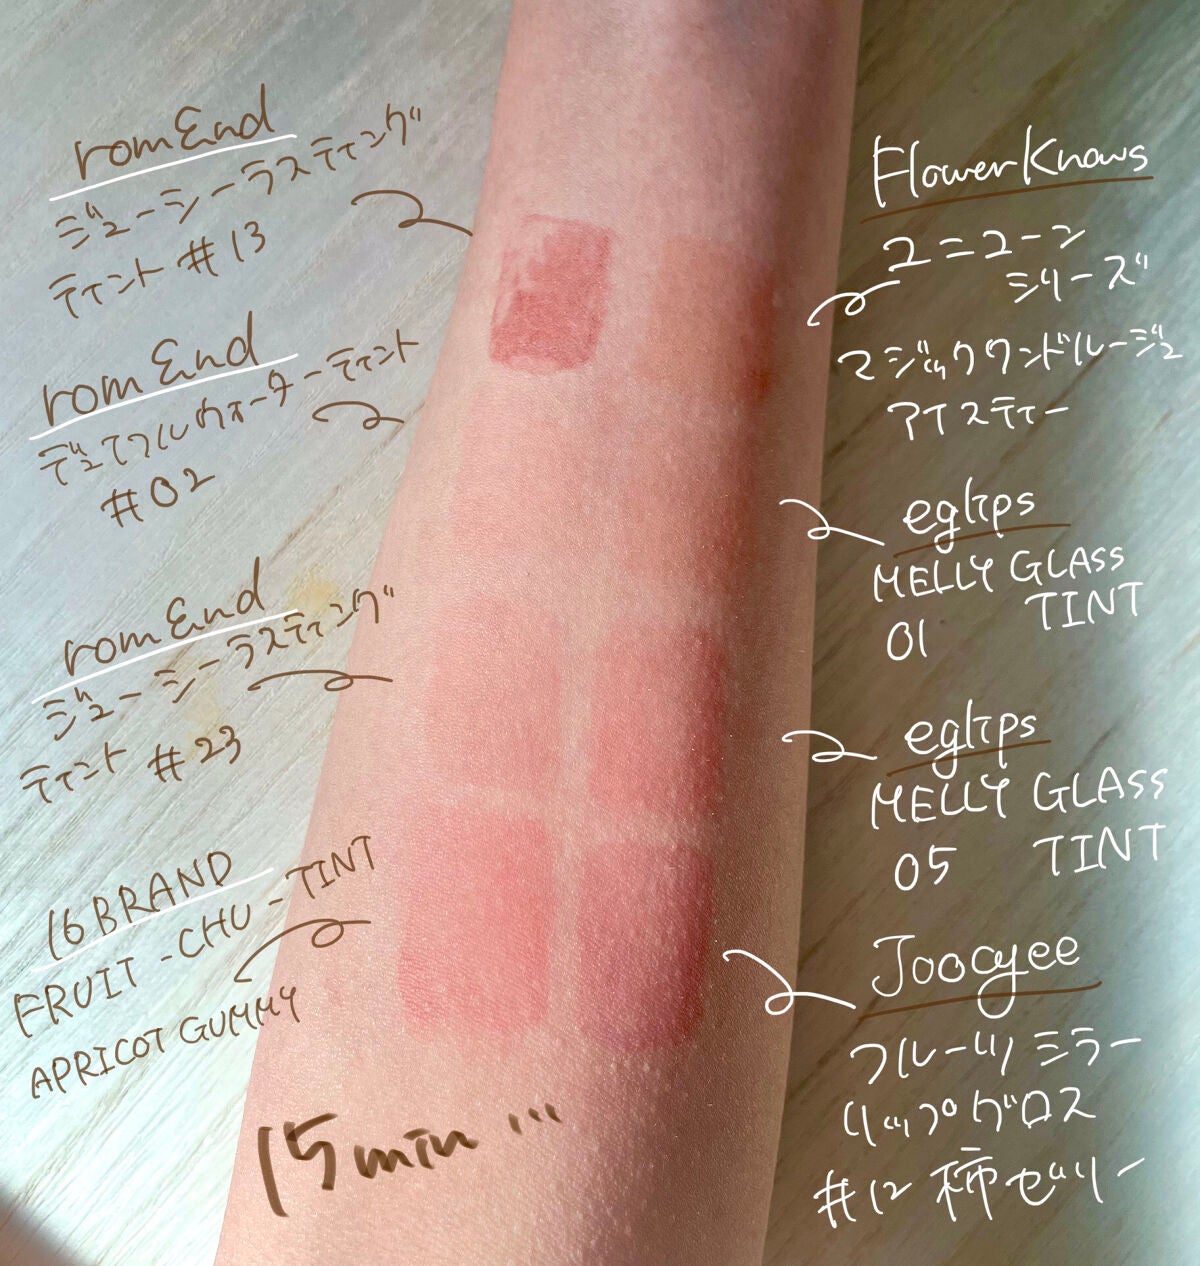 rom&nd
ジューシーラスティング
ティント #13
rom&nd
デュイフルウォーターティント
#02
rom&nd
ジューシーラスティング
ティント #23
16 BRAND
FRUIT-CHU-TINT
APRICOT GUMMY
15min...
Flower Knows
ユニコーン
シリーズ
マジックワンドルージュ
アイスティー
eglips
MELLY GLASS
TINT
01
eglips
MELLY GLASS
05 TINT
Joocyee
フルーツミラー
リップグロス
#12 柿ゼリー